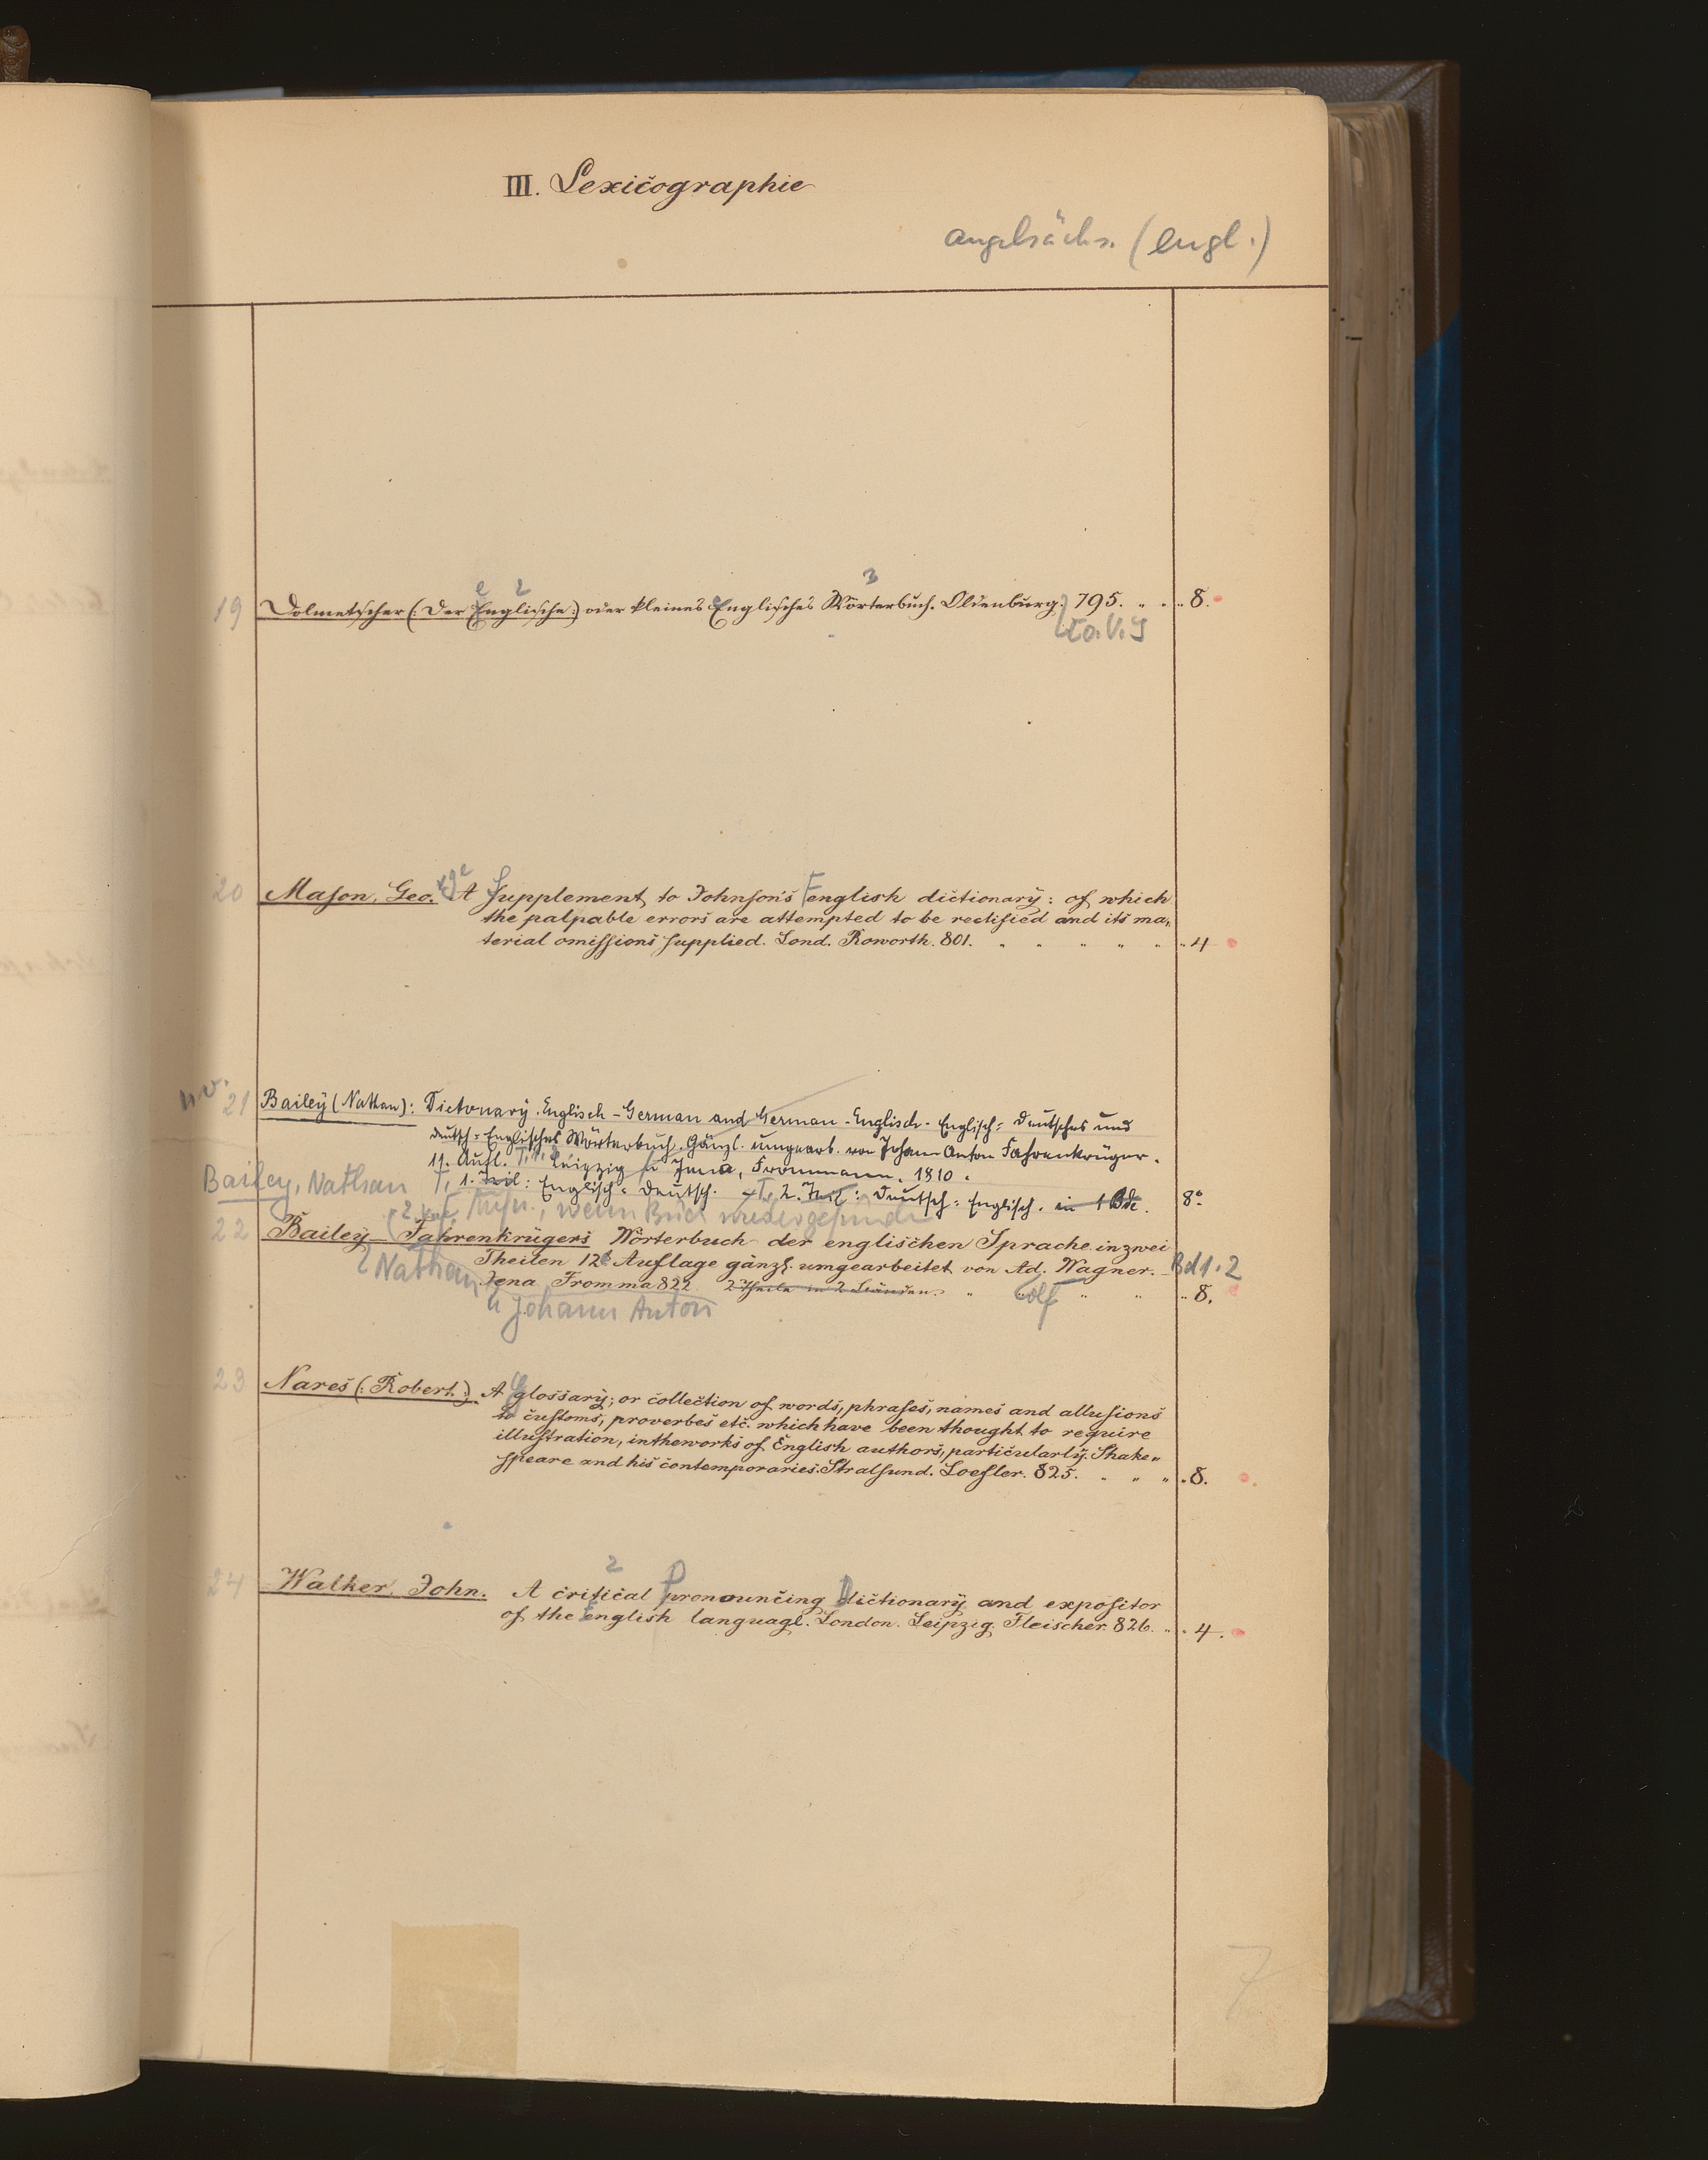 III. Lexicographie
angelsächs. (engl.)
19 Dolmetscher (: Der Englische :) oder kleines Englisches Wörterbuch. Oldenburg. 795. 8.
[o. V.]
20 Mason, Geo. A Supplement to Johnson's English dictionary: of which
the palpable errors are attempted to be rectified and its ma-
terial omissions supplied. Lond. Roworth. 801. 4
21 Bailey (Nathan): Dictonary. Englisch-German and German-Englisch. Englisch-Deutsches und
Deutsch-Englisches Wörterbuch. Gänzl. umgearb. von Johann Anton Fahrenkrüger.
11. Aufl. T. 1. Leipzig u Jena, Frommann. 1810.
T. 1. Teil: Englisch-Deutsch. T. 2. Teil: Deutsch-Englisch. in 1 Bde. 8°
Bailey, Nathan
wenn Buch wiedergefunden
22 Bailey Fahrenkrügers Wörterbuch der englischen Sprache in zwei
Theilen 12t Auflage gänzl. umgearbeitet von Ad. Wagner. Bd 1. 2
Nathan Jena Fromma 822 2 Theile in 2 Bänden. olf 8.
u Johann Anton
23 Nares (: Robert :) A glossary; or collection of words, phrases, names and allusions
to customs, proverbes etc. which have been thought to require
illustration, in the works of English authors, particularly Shake-
speare and his contemporaries. Stralsund. Loefler. 825. 8.
24 Walker, John. A critical pronouncing dictionary and expositor
of the English language. London. Leipzig. Fleischer. 826. 4.
7